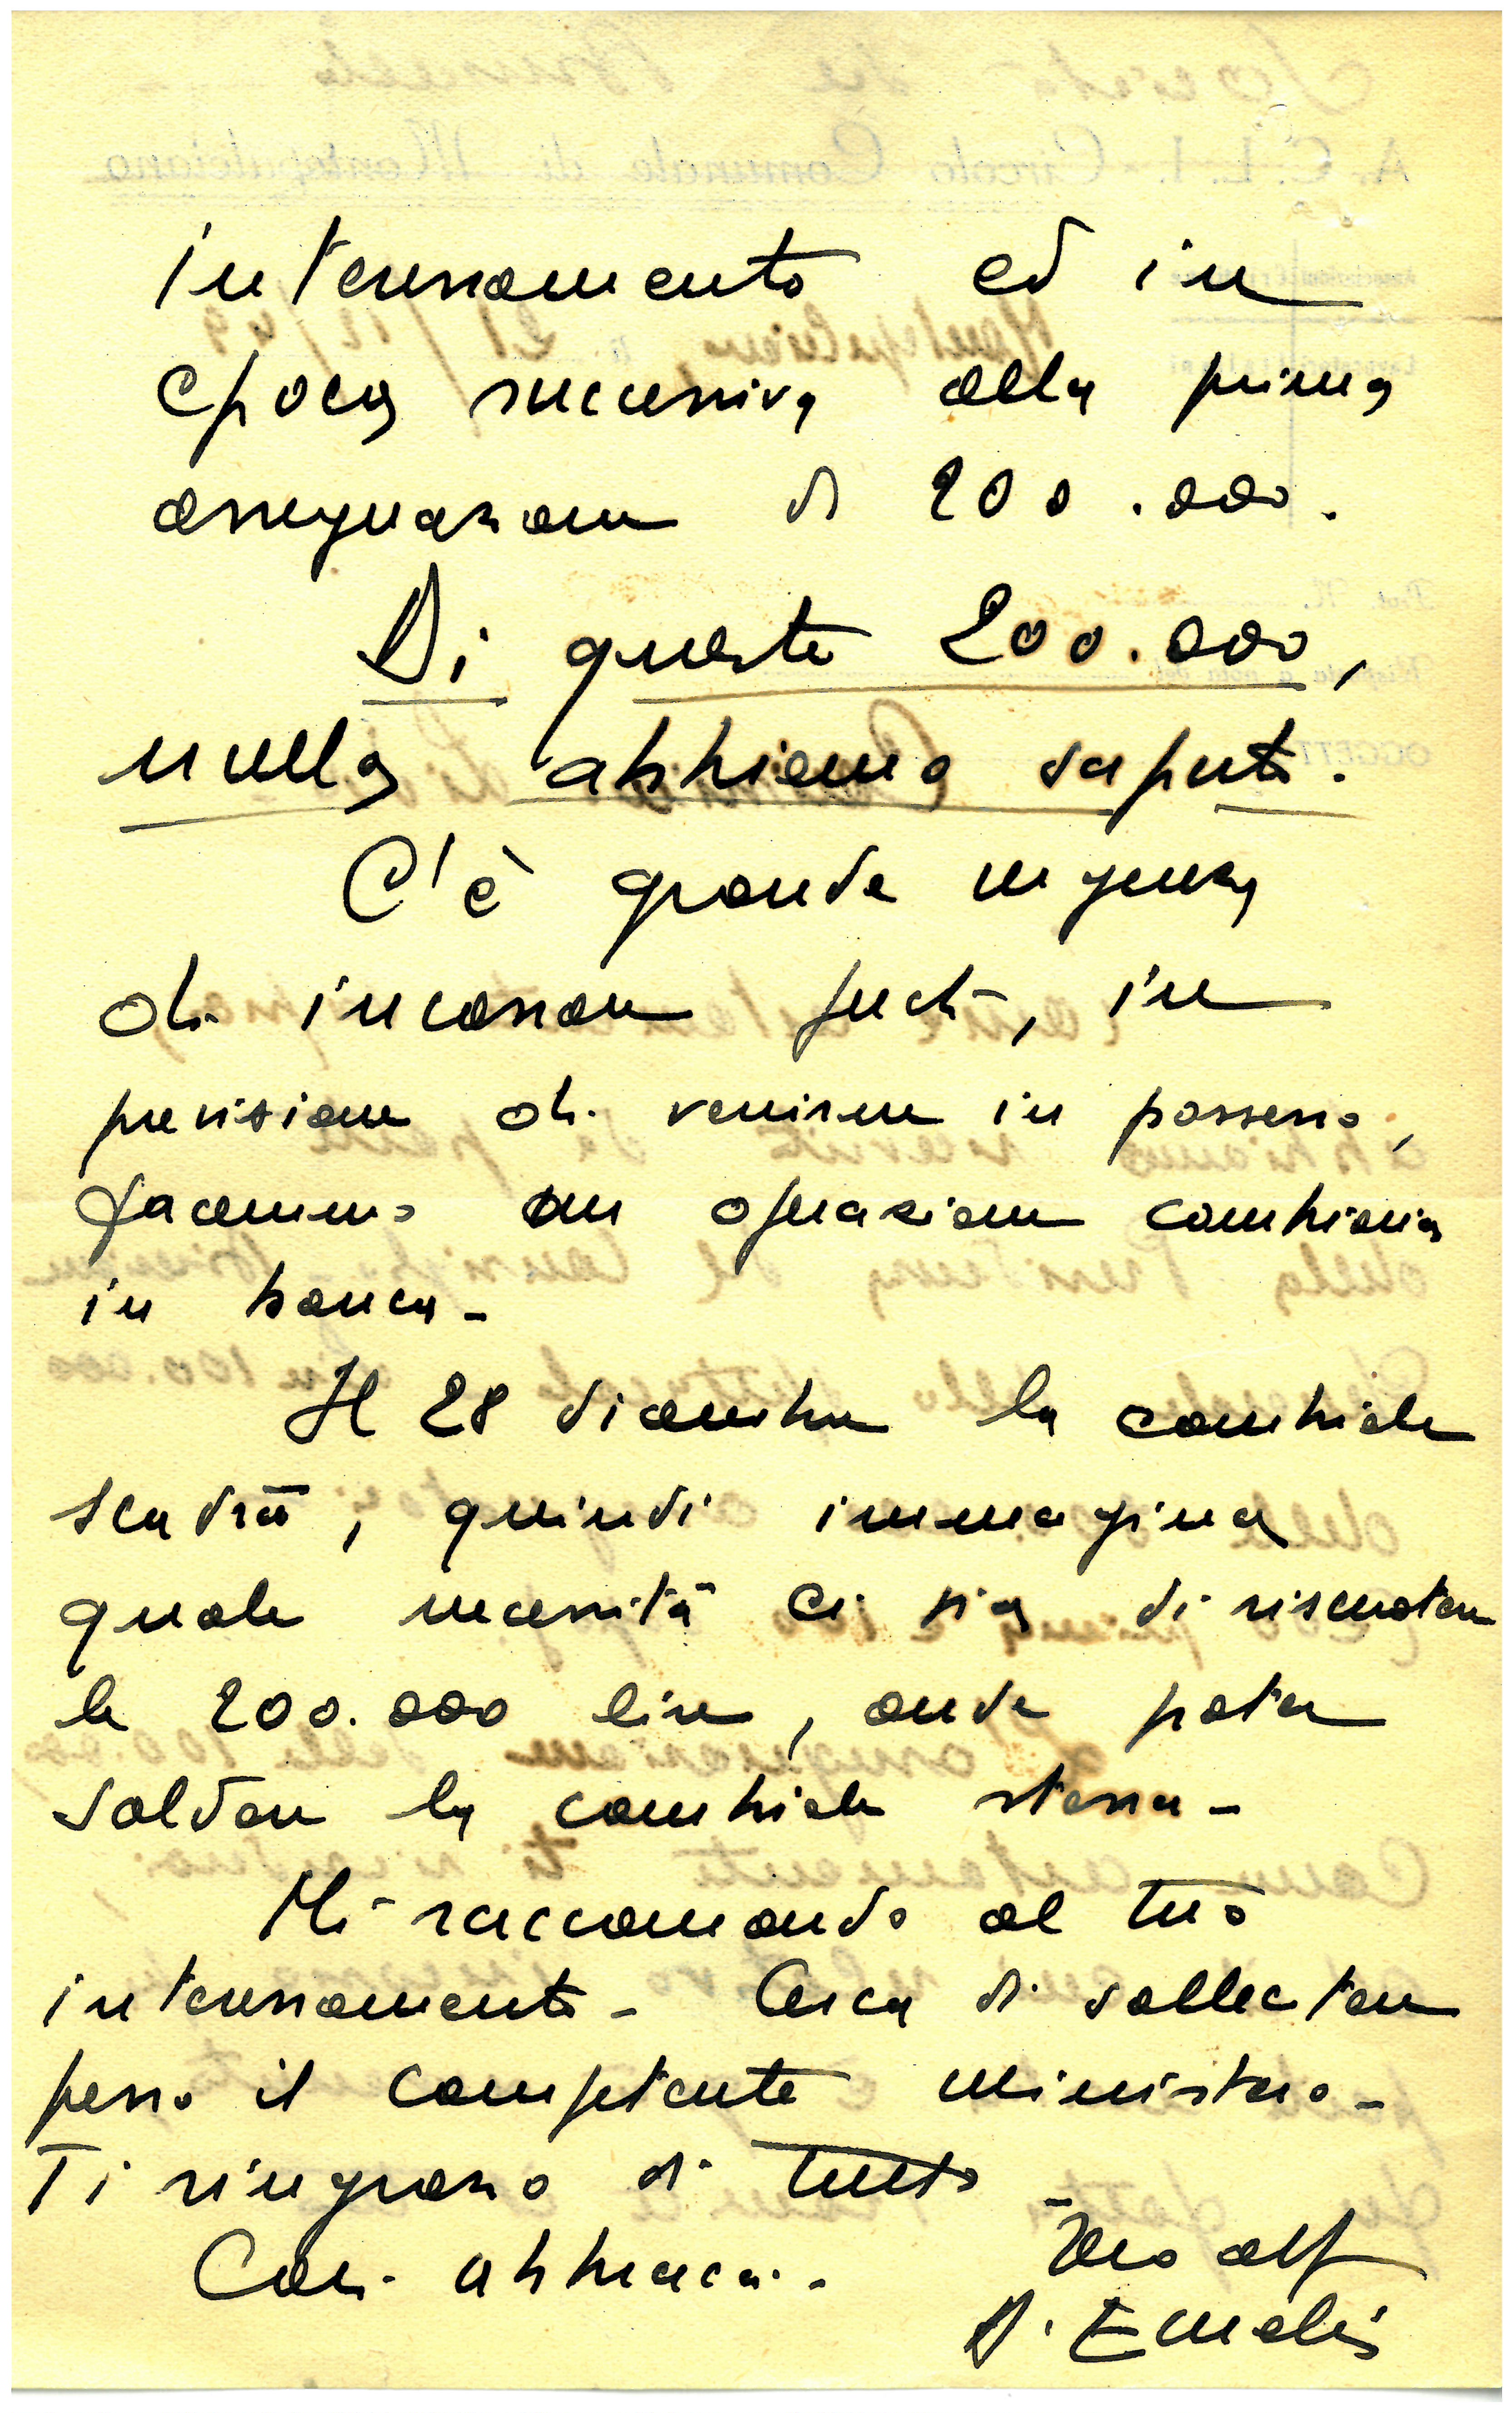 interessamento ed in
epoca successiva alla prima
assegnazione di 200.000.
Di queste 200.000,
nulla abbiamo saputo.
C'è grande urgenza
di incassare perché, in
previsione di venirne in possesso,
facemmo un operazione cambiaria
in banca -
Il 28 dicembre la cambiale
scadrà, quindi immagina
quale necessità ci sia di riscuotere
le 200.000 lire, onde poter
saldare la cambiale stessa -
Mi raccomando al tuo
interessamento - Cerca di sollecitare
presso il competente ministero -
Ti ringrazio di tutto
Cari abbracci. -
Tuo aff
D. Emelio